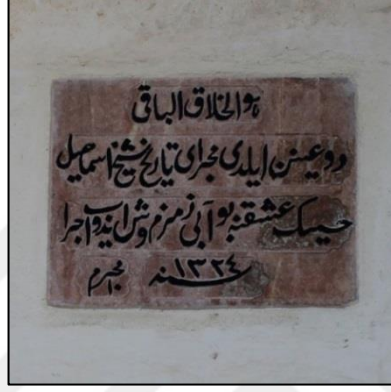 هو الخلاق الباقی
دو ایلدی مجرای تاریخ شیخ اسماعیل
حسینک عشقنه بو آبی زمزم وش ایدوب اجرا
سنه ١٣٢٤ محرم